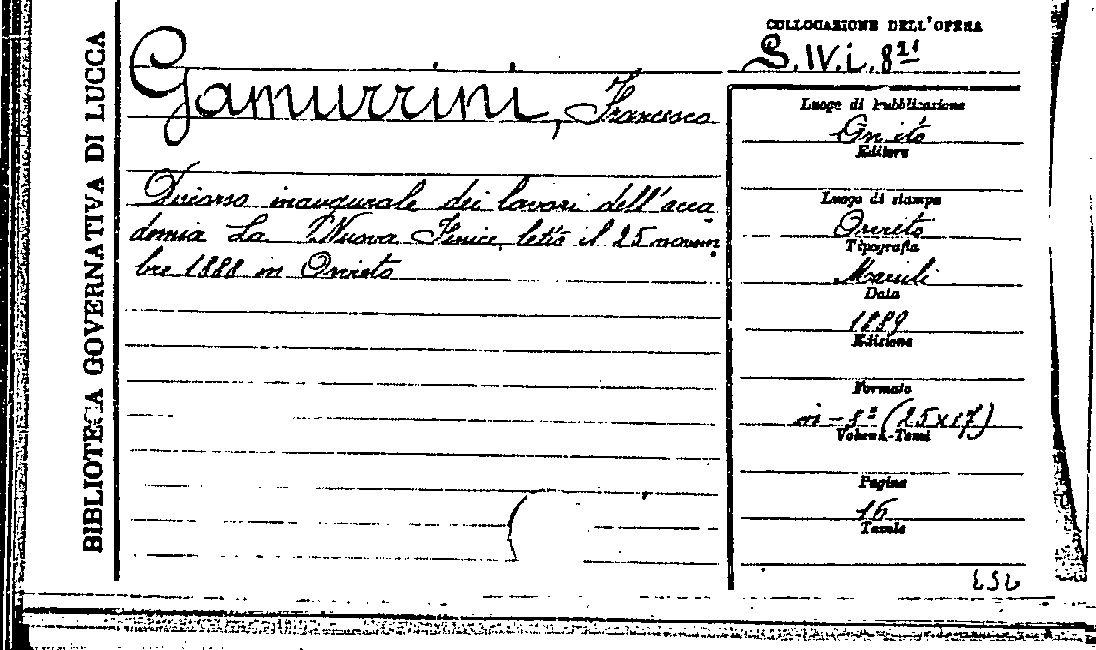 BIBLIOTECA GOVERNATIVA DI LUCCA
Gamurrini, Francesco
Discorso inaugurale dei lavori dell'acca
demia La Nuova Fenice, letto il 25 novem
bre 1888 in Orvieto
COLLOCAZIONE DELL'OPERA
S.IV.i.8
Luogo di pubblicazione
Orvieto
Editore
Luogo di stampa
Orvieto
Tipografia
Marsili
Data
1889
Edizione
Formato
in-8º (25x17)
Volumi-Tomi
Pagine
16
Tavole